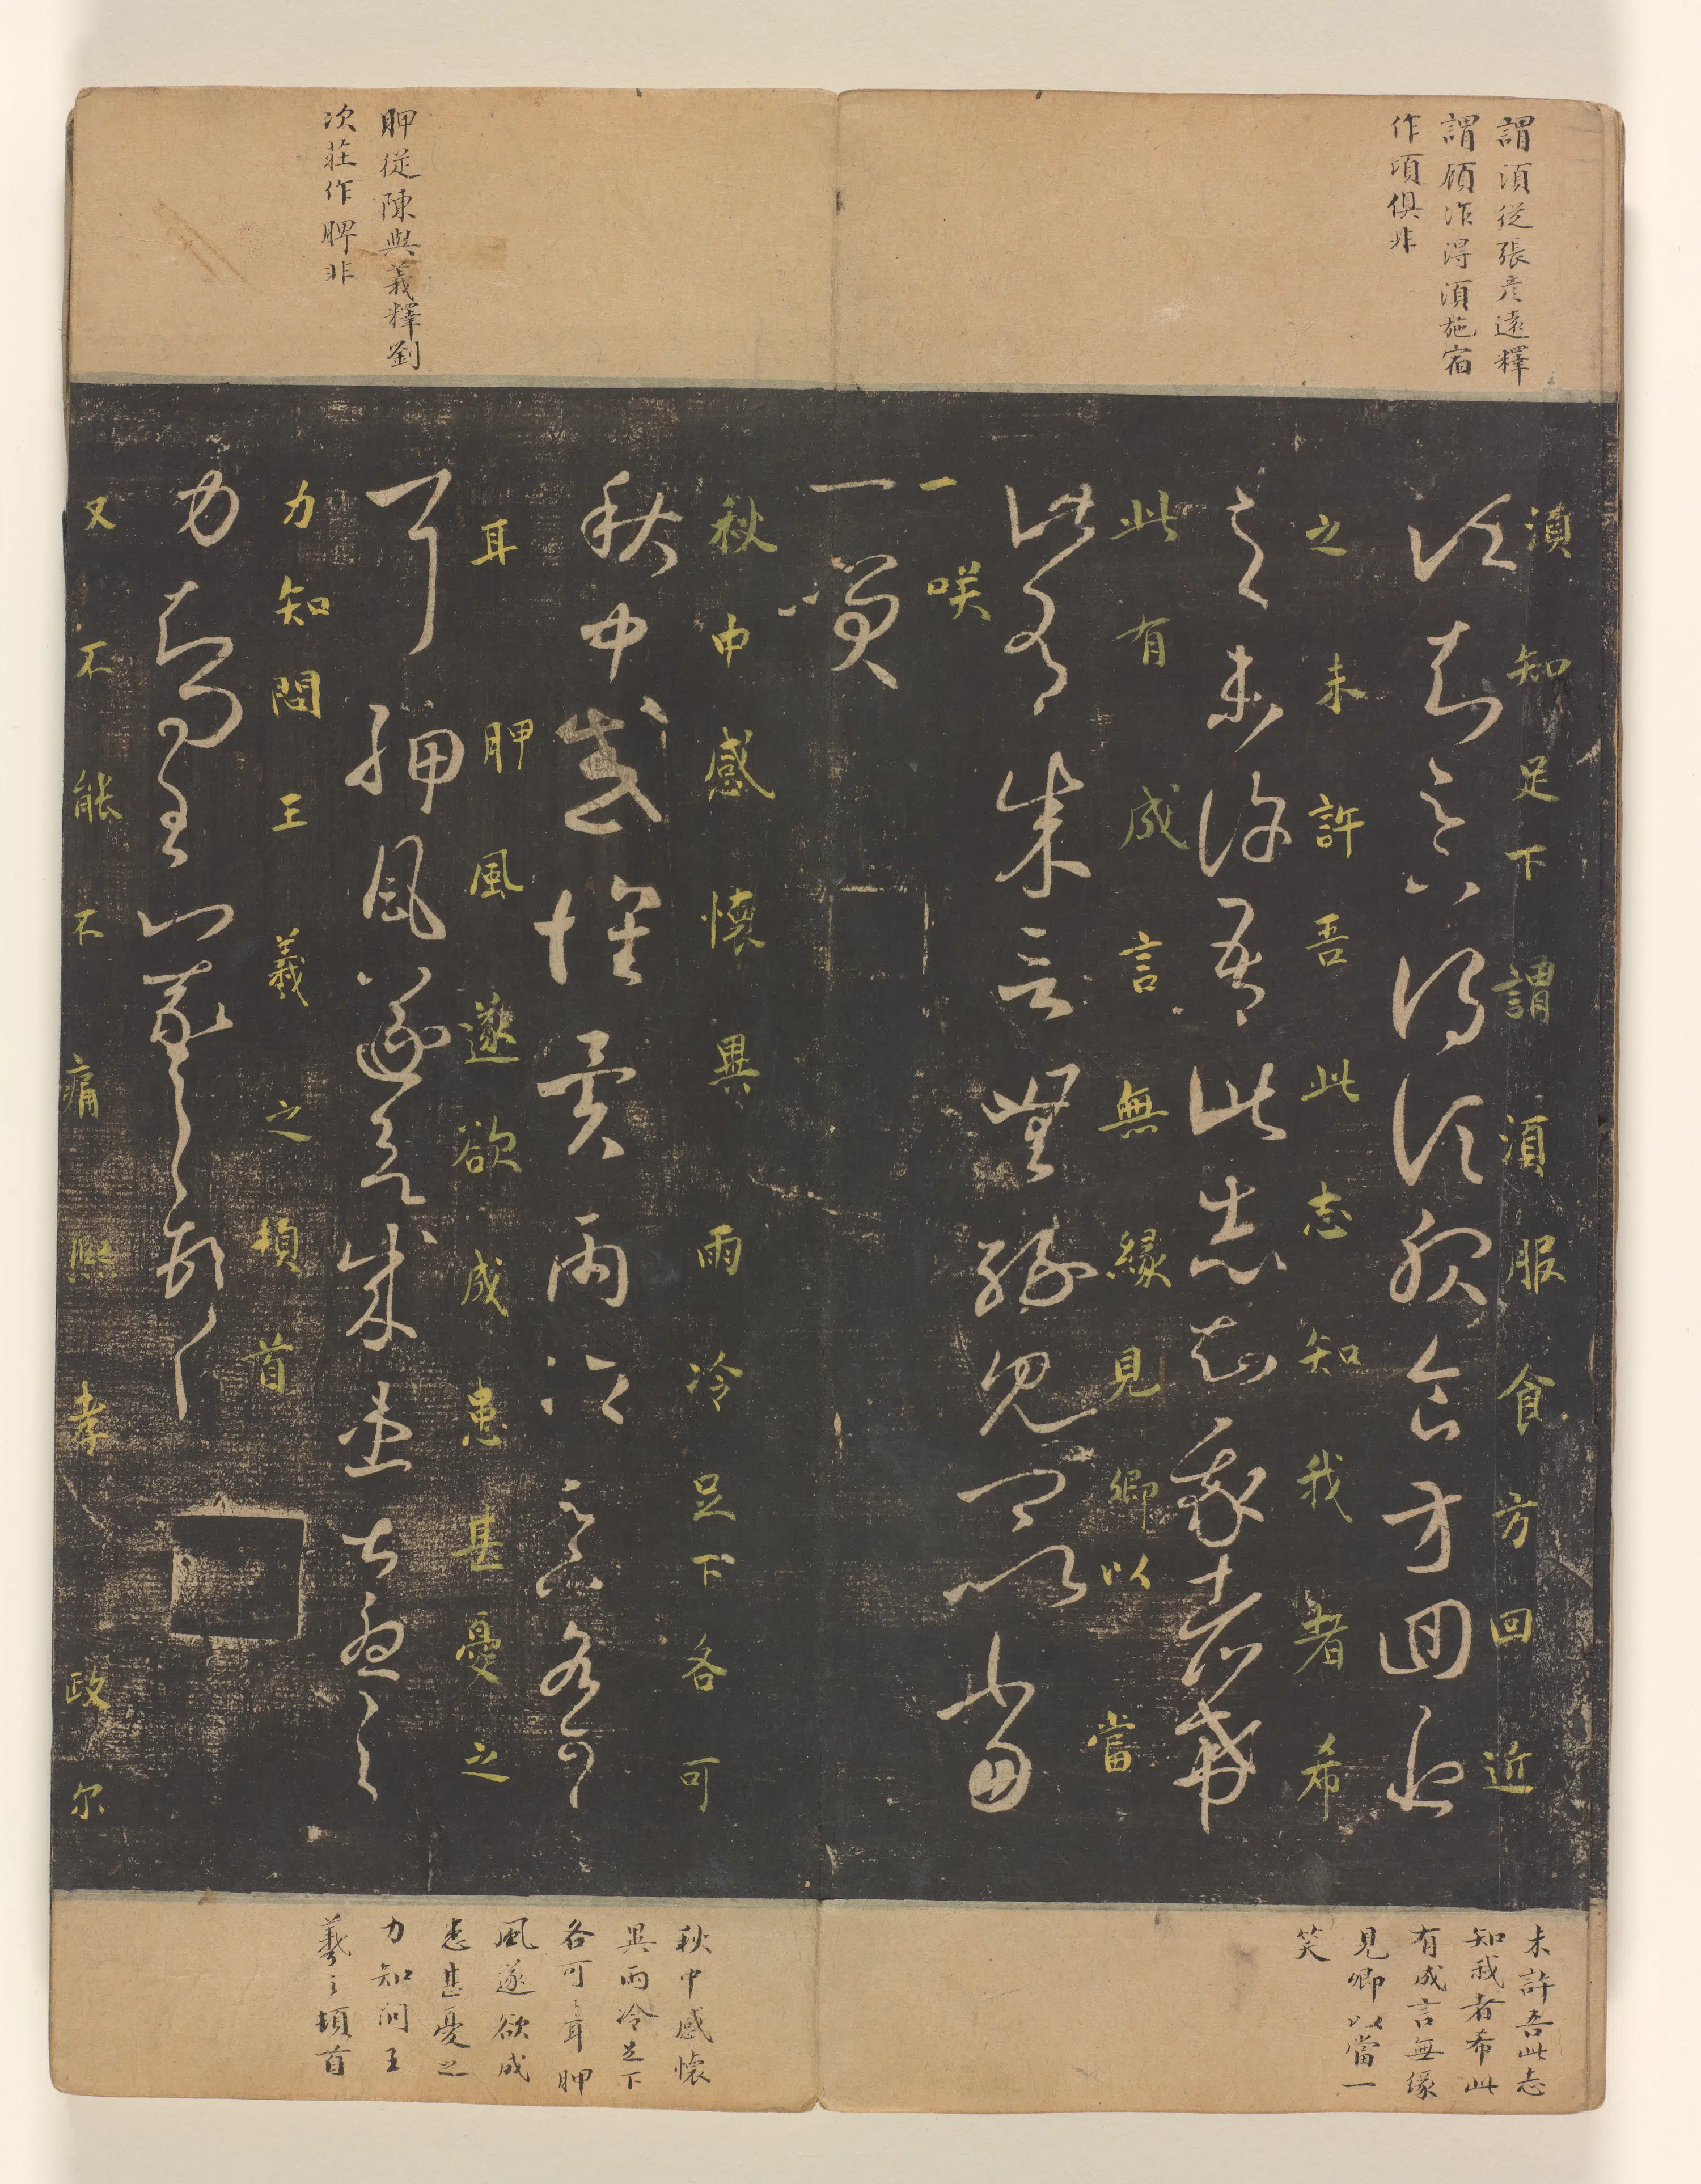 謂須從張彥遠釋
謂顧作得須施宿
作項俱非
須知足下謂須服食方回近
之未許吾此志知我者希
此有成言無緣見卿以當
一咲
未許吾此志
知我者希此
有成言無緣
見卿以當一
笑
胛從陳與義釋劉
次莊作脾非
秋中感懷異雨冷足下各可
耳胛風遂欲成患甚憂之
力知問王羲之頓首
又不能不痛熙孝政尔
秋中感懷
異雨冷足下
各可耳胛
風遂欲成
患甚憂之
力知問王
羲之頓首